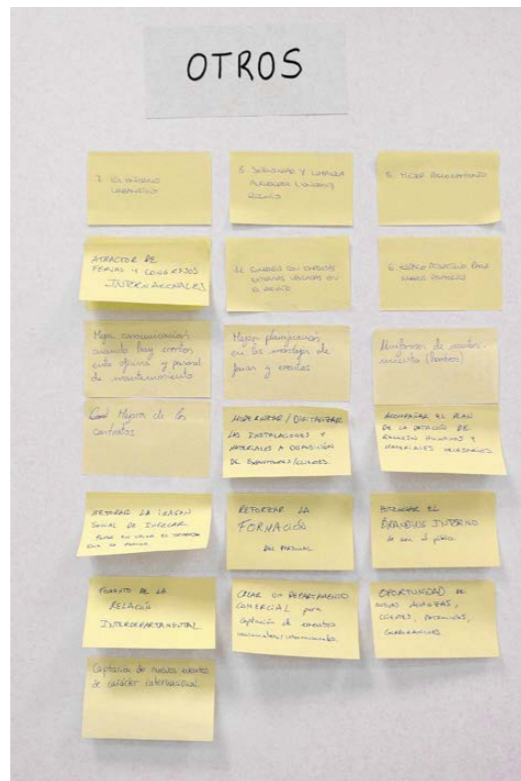 OTROS
7. EL ENTORNO
URBANÍSTICO
8. SEGURIDAD Y LIMPIEZA
ALREDEDOR
RECINTO
5. MEJOR
ATRACTOR DE
FERIAS Y CONGRESOS
INTERNACIONALES
11. CON EMPRESAS
EXTERNAS UBICADAS EN
EL RECINTO
6. ESPACIO PARA
Mejor comunicación
cuando hay eventos
entre oficina y personal
de mantenimiento
Mejor planificación
en los montajes de
ferias y eventos
Uniformes de
Mejora de los
contratos
MODERNIZAR / DIGITALIZAR
LAS INSTALACIONES Y
MATERIALES A DISPOSICIÓN
DE EXPOSITORES/CLIENTES.
ACOMPAÑAR EL PLAN
DE LA DOTACIÓN DE
RECURSOS HUMANOS Y
MATERIALES NECESARIOS
MEJORAR LA IMAGEN
SOCIAL DE
PONER EN VALOR EL
REFORZAR LA
FORMACIÓN
DEL PERSONAL
POTENCIAR EL
BRANDING INTERNO
FOMENTO DE LA
RELACIÓN
INTERDEPARTAMENTAL
CREAR UN DEPARTAMENTO
COMERCIAL para
captación de eventos
nacionales/internacionales.
OPORTUNIDAD DE
NUEVAS ALIANZAS,
CLIENTES,
Captación de nuevos eventos
de carácter internacional